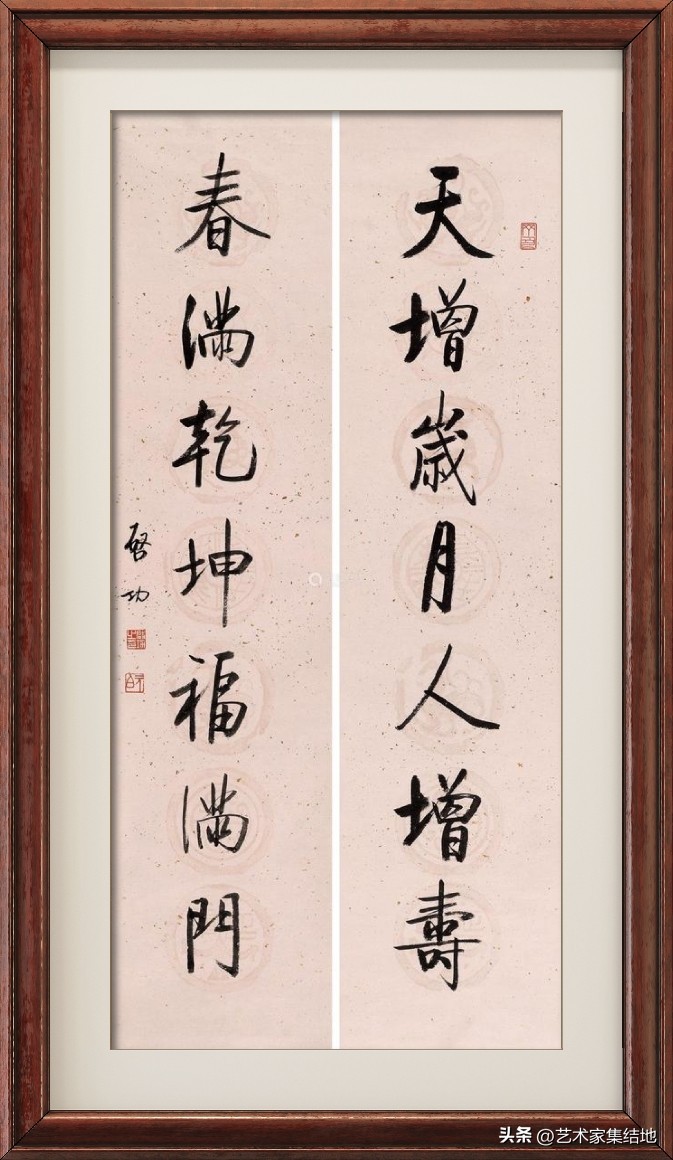 天增歲月人增壽
春滿乾坤福滿門
啓功
头条 @艺术家集结地